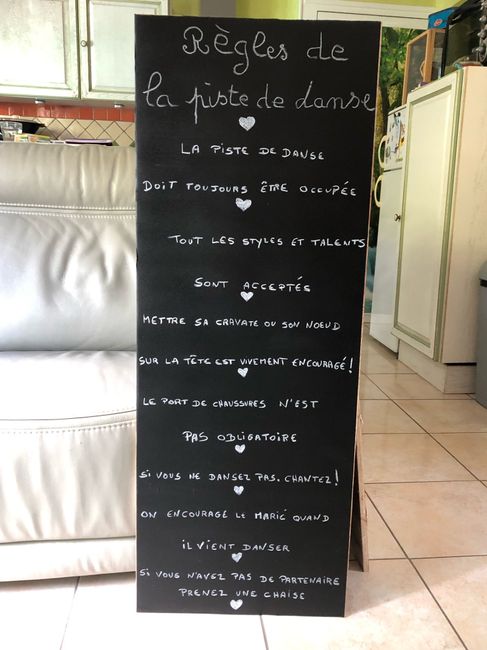 Règles de
la piste de danse
LA PISTE DE DANSE
DOIT TOUJOURS ÊTRE OCCUPÉE
TOUT LES STYLES ET TALENTS
SONT ACCEPTÉS
METTRE SA CRAVATE OU SON NOEUD
SUR LA TÊTE EST VIVEMENT ENCOURAGÉ!
LE PORT DE CHAUSSURES N'EST
PAS OBLIGATOIRE
SI VOUS NE DANSEZ PAS. CHANTEZ!
ON ENCOURAGE LE MARIÉ QUAND
IL VIENT DANSER
SI VOUS N'AVEZ PAS DE PARTENAIRE
PRENEZ UNE CHAISE